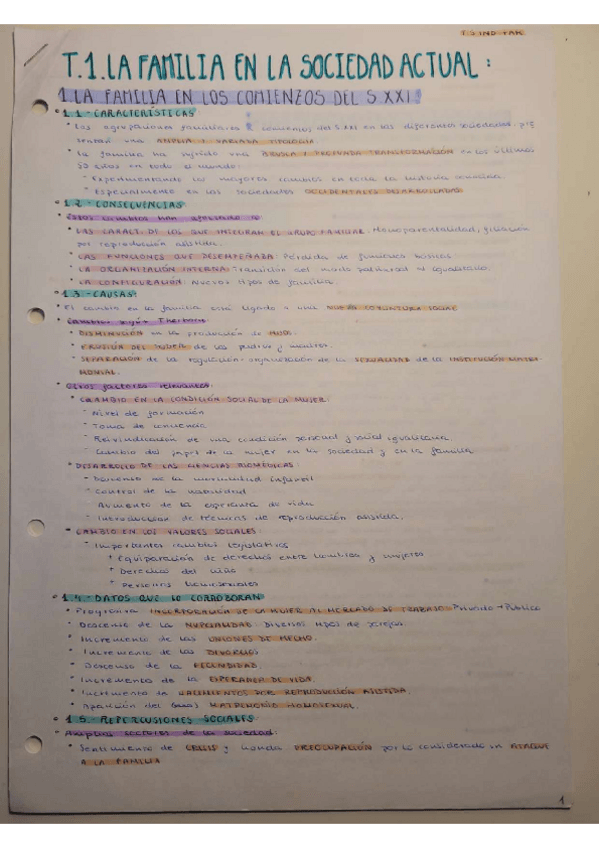 T.S IND-FAM
T.1. LA FAMILIA EN LA SOCIEDAD ACTUAL:
1. LA FAMILIA EN LOS COMIENZOS DEL S XXI:
1.1.- CARACTERÍSTICAS
Las agrupaciones familiares a comienzos del S.XXI en las diferentes sociedades pre
sentan una AMPLIA Y VARIADA TIPOLOGÍA
La familia ha sufrido una BRUSCA Y PROFUNDA TRANSFORMACIÓN en los últimos
años en todo el mundo:
- Experimentando los mayores cambios en toda la historia
- Especialmente en las sociedades OCCIDENTALES DESARROLLADAS
1.2.- CONSECUENCIAS
Estos cambios han afectado a:
LAS CARACT. DE LOS QUE INTEGRAN EL GRUPO FAMILIAR: Monoparentalidad, filiación
por reproducción asistida.
LAS FUNCIONES QUE DESEMPEÑABA: Pérdida de funciones básicas
LA ORGANIZACIÓN INTERNA: Transición del modo patriarcal al igualitario.
LA CONFIGURACIÓN: Nuevos tipos de familia.
1.3.- CAUSAS:
El cambio en la familia está ligado a una NUEVA COYUNTURA SOCIAL
Cambios según Therborn:
DISMINUCIÓN en la producción de HIJOS.
EROSIÓN DEL PODER de los padres y maridos.
SEPARACIÓN de la regulación-organización de la SEXUALIDAD de la INSTITUCIÓN MATRI-
MONIAL.
Otros factores relevantes:
CAMBIO EN LA CONDICIÓN SOCIAL DE LA MUJER:
- Nivel de formación
- Toma de conciencia
- Reivindicación de una condición personal y social igualitaria.
- Cambio del papel de la mujer en la sociedad y en la familia
DESARROLLO DE LAS CIENCIAS BIOMÉDICAS:
- Descenso de la mortalidad infantil
- Control de la natalidad
- Aumento de la esperanza de vida
- Introducción de técnicas de reproducción asistida.
CAMBIO EN LOS VALORES SOCIALES:
- Importantes cambios legislativos
+ Equiparación de derechos entre hombres y mujeres
+ Derechos del niño
+ Personas homosexuales
1.4.- DATOS QUE LO CORROBORAN
Progresiva INCORPORACIÓN DE LA MUJER AL MERCADO DE TRABAJO: Privado → Público
Descenso de la NUPCIALIDAD: DIVERSOS tipos de parejas.
Incremento de las UNIONES DE HECHO.
Incremento de los DIVORCIOS
Descenso de la FECUNDIDAD.
Incremento de la ESPERANZA DE VIDA.
Incremento de NACIMIENTOS POR REPRODUCCIÓN ASISTIDA.
Aparición del MATRIMONIO HOMOSEXUAL.
1.5.- REPERCUSIONES SOCIALES
Amplios sectores de la sociedad:
Sentimiento de CRISIS y honda PREOCUPACIÓN por lo considerado un ATAQUE
A LA FAMILIA
1